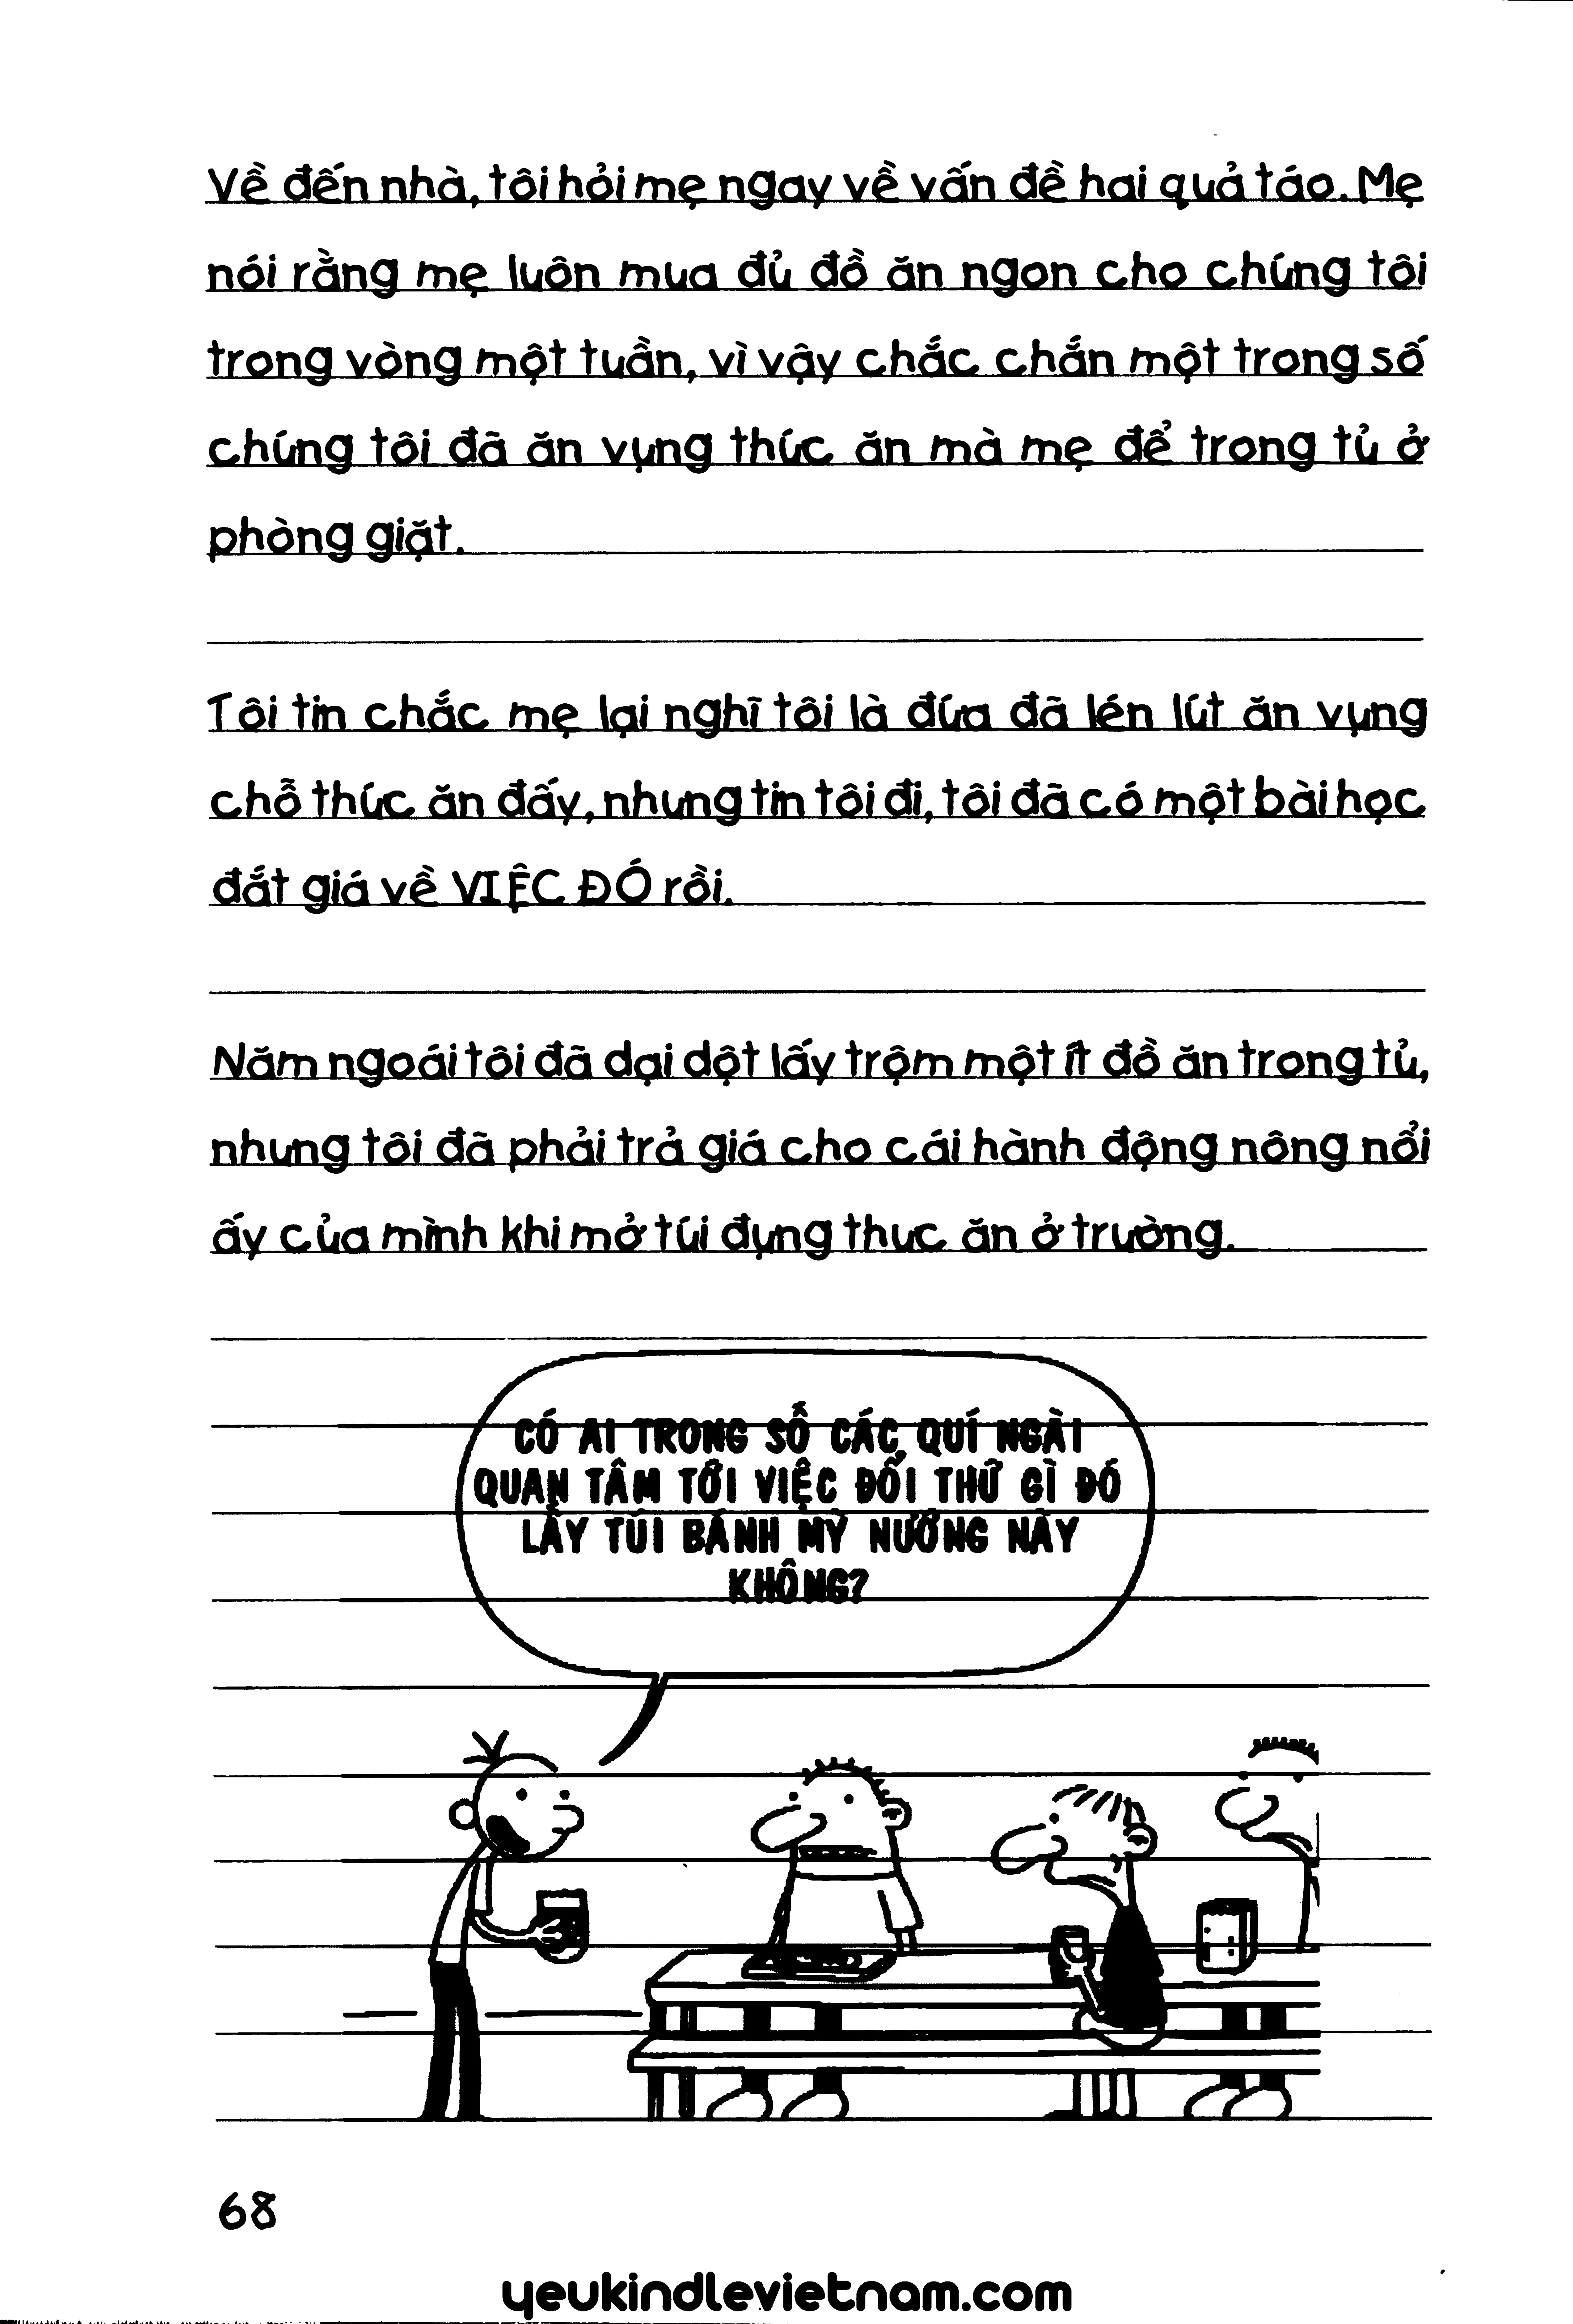 Về đến nhà, tôi hỏi mẹ ngay về vấn đề hai quả táo. Mẹ
nói rằng mẹ luôn mua đủ đồ ăn ngon cho chúng tôi
trong vòng một tuần, vì vậy chắc chắn một trong số
chúng tôi đã ăn vụng thức ăn mà mẹ để trong tủ ở
phòng giặt.
Tôi tin chắc mẹ lại nghĩ tôi là đứa đã lén lút ăn vụng
chỗ thức ăn đấy, nhưng tin tôi đi, tôi đã có một bài học
đắt giá về VIỆC ĐÓ rồi.
Năm ngoái tôi đã dại dột lấy trộm một ít đồ ăn trong tủ,
nhưng tôi đã phải trả giá cho cái hành động nông nổi
ấy của mình khi mở túi đựng thưc ăn ở trường.
CÓ AI TRONG SỐ CÁC QUÍ NGÀI
QUAN TÂM TỚI VIỆC ĐỔI THỨ GÌ ĐÓ
LẤY TÚI BÁNH MỲ NƯỚNG NÀY
KHÔNG?
68
yeukindlevietnam.com